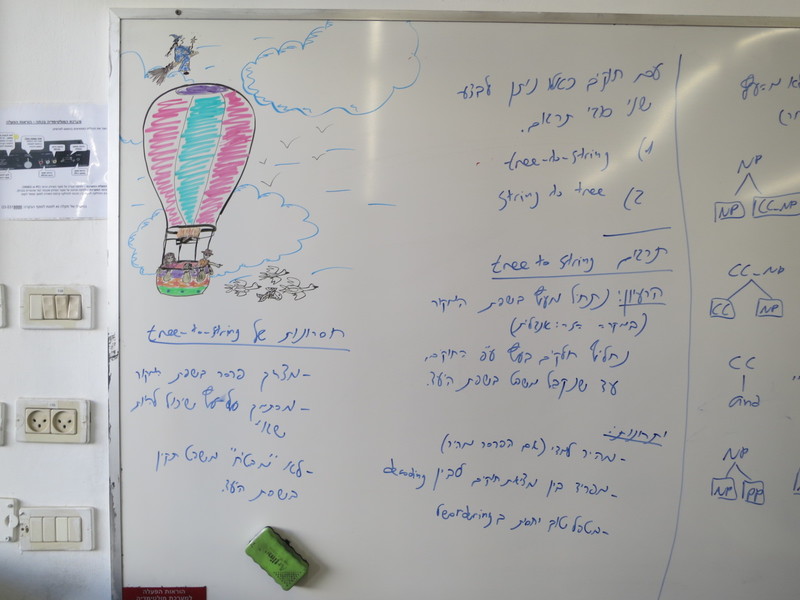 עם חוקים כאלו ניתן לבצע
שני סוגי תרגום.
1) tree-to-string
2) string to tree
תרגום tree to string
הרעיון: נתחיל מעץ בשפת המקור
(במקרה הזה: אנגלית)
נחליף חלקים בעץ ע"פ החוקים,
עד שנקבל משפט בשפת היעד.
יתרונות:
- מהיר למדי (אם הפרסר מהיר)
- מפריד בין מציאת חוקים לבין decoding
- מטפל טוב יחסית ב reordering
חסרונות של tree-to-string
- מצריך פרסר בשפת המקור
- מסתמך על עץ שיכול להיות
שגוי
- לא "מבטיח" משפט תקין
בשפת היעד.
NP
NP CC_NP
CC_NP
CC NP
CC
and
NP
NP PP
הוראות הפעלה